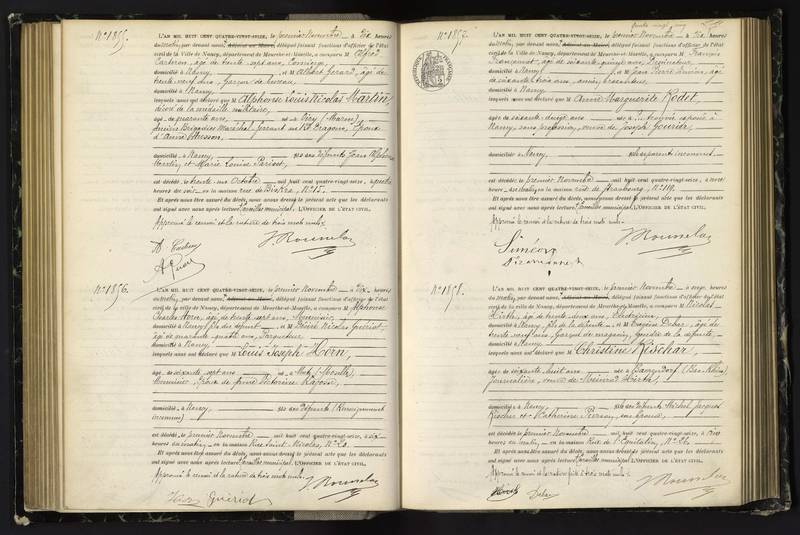 N° 1855.
L'AN MIL HUIT CENT QUATRE-VINGT-SEIZE, le premier Novembre à dix heures
du matin, par devant nous, Adjoint au Maire, délégué faisant fonctions d'officier de l'état
civil de la Ville de Nancy, département de Meurthe-et-Moselle, a comparu M
âgé de trente sept ans,
domicilié à Nancy, et M Albert Gérard, âgé de
trente neuf ans, Garçon de bureau,
domicilié à Nancy
lesquels nous ont déclaré que M Alphonse Louis Nicolas Martin,
décoré de la médaille militaire,
âgé de quarante ans, né à Vitry (Marne)
Ancien Brigadier Maréchal ferrant au Dragons, Epoux
d'Anna
domicilié à Nancy, fils des défunts Jean Alphonse
Martin et Marie Louise Parisot,
est décédé le trente un Octobre mil huit cent quatre-vingt-seize, à quatre
heures du soir en la maison rue de Biskra, N° 15.
Et après nous être assuré du décès, nous avons dressé le présent acte que les déclarants
ont signé avec nous après lecture, Conseiller municipal. L'OFFICIER DE L'ÉTAT CIVIL,
Approuvé le renvoi et la rature de trois mots nuls.
N° 1856.
L'AN MIL HUIT CENT QUATRE-VINGT-SEIZE, le premier Novembre à dix heures
du matin, par devant nous, Adjoint au Maire, délégué faisant fonctions d'officier de l'état
civil de la ville de Nancy, département de Meurthe-et-Moselle, a comparu M Alphonse
Charles Horn, âgé de trente sept ans, Menuisier,
domicilié à Nancy, fils du défunt et M Nicolas Guériot,
âgé de quarante quatre ans,
domicilié à Nancy
lesquels nous ont déclaré que M Louis Joseph Horn,
âgé de soixante sept ans né à Metz (Moselle)
Menuisier, Epoux de Victorine
domicilié à Nancy, fils des défunts (Renseignements
inconnus)
est décédé le premier Novembre mil huit cent quatre-vingt-seize, à six
heures du matin, en la maison Rue Saint Nicolas, N° 20.
Et après nous être assuré du décès, nous avons dressé le présent acte que les déclarants
ont signé avec nous après lecture, Conseiller municipal. L'OFFICIER DE L'ÉTAT CIVIL,
Approuvé le renvoi et la rature de trois mots nuls.
Horn Guériot
N° 1857.
L'AN MIL HUIT CENT QUATRE-VINGT-SEIZE, le premier Novembre à dix heures
du matin, par devant nous, Adjoint au Maire, délégué faisant fonctions d'officier de l'état
civil de la Ville de Nancy, département de Meurthe-et-Moselle, a comparu M François
âgé de soixante quinze ans,
domicilié à Nancy, et M Jean Pierre Siméon, âgé
de soixante trois ans,
domicilié à Nancy
lesquels nous ont déclaré que M Anne Marguerite Rodet,
âgée de soixante douze ans née à trouvée exposée à
Nancy, sans profession, veuve de Joseph
domiciliée à Nancy, de parents inconnus
est décédée le premier Novembre mil huit cent quatre-vingt-seize, à trois
heures en la maison rue de Strasbourg, N° 119.
Et après nous être assuré du décès, nous avons dressé le présent acte que les déclarants
ont signé avec nous après lecture, Conseiller municipal. L'OFFICIER DE L'ÉTAT CIVIL,
Approuvé le renvoi et la rature de trois mots nuls.
Siméon
N° 1858.
L'AN MIL HUIT CENT QUATRE-VINGT-SEIZE, le premier Novembre à onze heures
du matin, par devant nous, Adjoint au Maire, délégué faisant fonctions d'officier de l'état
civil de la ville de Nancy, département de Meurthe-et-Moselle, a comparu M Nicolas
Hirtz, âgé de trente deux ans,
domicilié à Nancy, fils de la défunte et M Eugène âgé de
trente neuf ans, Garçon de magasin, gendre de la défunte
domicilié à Nancy
lesquels nous ont déclaré que M Christine Rischar,
âgée de soixante huit ans née à (Bas-Rhin)
Journalière, veuve de Hirtz,
domiciliée à Nancy, fille des défunts Michel Jacques
Rischar et Catherine
est décédée le premier Novembre mil huit cent quatre-vingt-seize, à
heures du matin, en la maison Rue de l'Equitation, N° 26.
Et après nous être assuré du décès, nous avons dressé le présent acte que les déclarants
ont signé avec nous après lecture, Conseiller municipal. L'OFFICIER DE L'ÉTAT CIVIL,
Approuvé le renvoi et la rature de trois mots nuls.